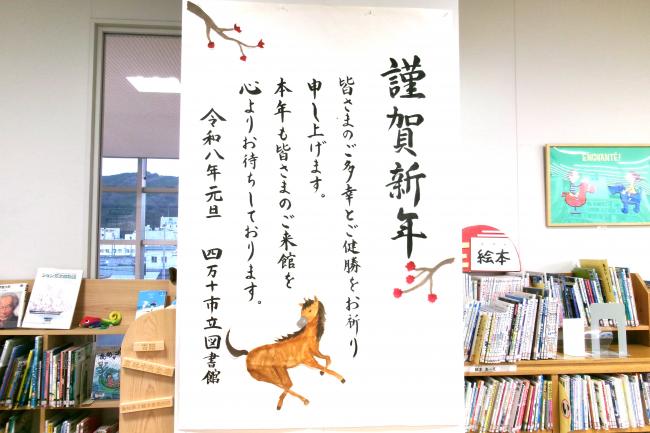 謹賀新年
皆さまのご多幸とご健勝をお祈り
申し上げます。
本年も皆さまのご来館を
心よりお待ちしております。
令和八年元旦 四万十市立図書館
ENCHANTÉ!
絵本